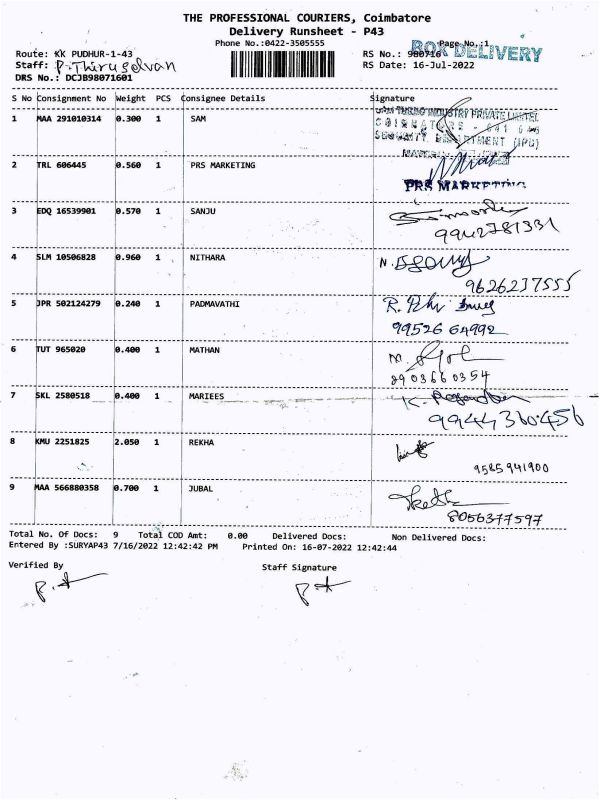 THE PROFESSIONAL COURIERS, Coimbatore
Delivery Runsheet - P43
Phone No.:0422-3505555
Page No.:1
BOX DELIVERY
Route: KK PUDHUR-1-43
RS No.: 980716
Staff: P. Thiruselvan
RS Date: 16-Jul-2022
DRS No.: DCJB98071601
S No Consignment No Weight PCS Consignee Details Signature
1 MAA 291010314 0.300 1 SAM
INDUSTRY PRIVATE LIMITED
COIMBATORE - 641
SECURITY DEPARTMENT
2 TRL 606445 0.560 1 PRS MARKETING
PRS MARKETING
3 EDQ 16539901 0.570 1 SANJU
9942781331
4 SLM 10506828 0.960 1 NITHARA
9626237555
5 JPR 502124279 0.240 1 PADMAVATHI
99526 64992
6 TUT 965020 0.400 1 MATHAN
8903660354
7 SKL 2580518 0.400 1 MARIEES
9944360456
8 KMU 2251825 2.050 1 REKHA
9585941900
9 MAA 566880358 0.700 1 JUBAL
8056377597
Total No. Of Docs: 9 Total COD Amt: 0.00 Delivered Docs: Non Delivered Docs:
Entered By :SURYAP43 7/16/2022 12:42:42 PM Printed On: 16-07-2022 12:42:44
Verified By Staff Signature